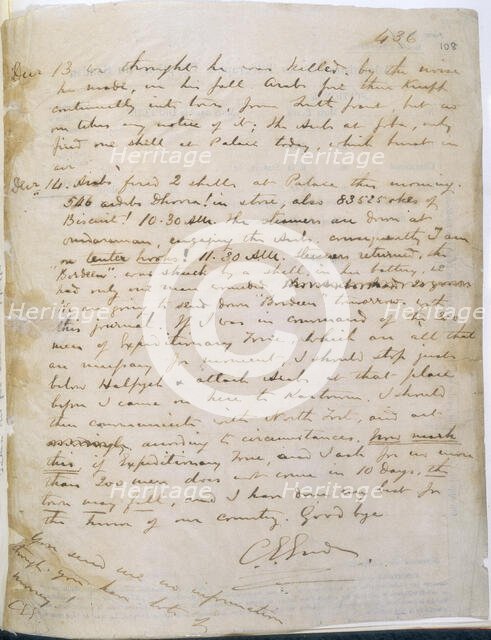 436
108
Decr 13 on thought he was killed. by the noise
he made, in his fall Arabs fire their Krupps
continually into town, from South front, but no
one takes any notice of it; The Arabs at Goba, only
fired one shell at Palace today, which burst in
air
Decr 14. Arabs fired 2 shells at Palace this morning.
546 ardebs Dhoora! in store, also 83525 okes of
Biscuit! 10.30 AM. The steamers are down at
Omdurman, engaging the Arabs, consequently I am
on tenter hooks! 11.30 AM. steamers returned, the
"Bordeen" was struck by a shell, in her battery, we
had only one man wounded
We are going to send down Bordeen tomorrow with
this journal. If I was in command of the 200
men of Expeditionary Force, which are all that
are necessary for moment, I should stop just
below Halfyeh & attack Arabs at that place
before I came on here to Kartoum. I should
then communicate with North Fort, and act
according to circumstances. Now mark
this, if Expeditionary Force, and I ask for no more
than 200 men, does not come in 10 days, the
town may fall, and I have done my best for
the honor of our country. Good bye
C. G. Gordon
You send me no information
though you have lots of
money
C.G.G.
Heritage Images
Heritage Images
Heritage Images
Heritage Images
Heritage Images
Heritage Images